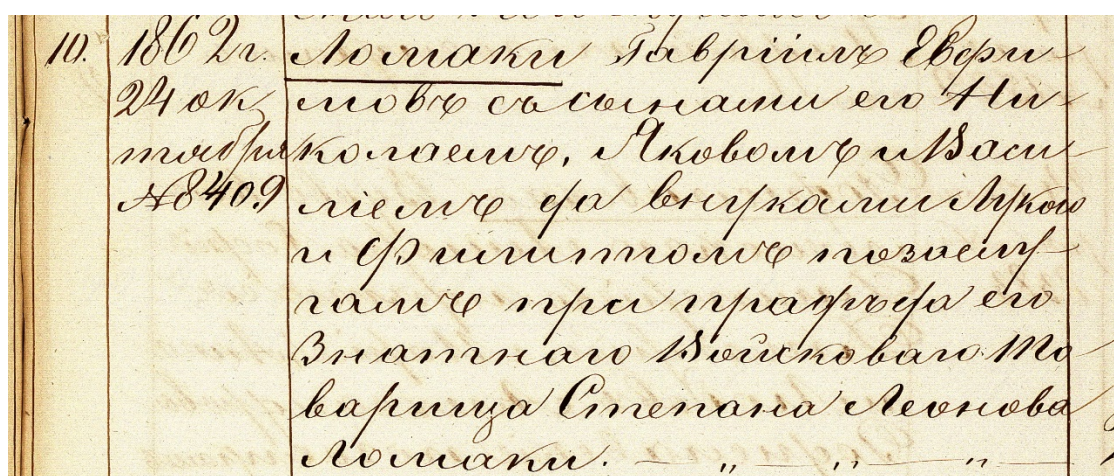 10. 1862 г. Ломаки Гавріилъ Ефри-
24 ок- мовъ съ сынами его Ни-
тября колаемъ, Яковомъ и Васи-
№ 8409 ліемъ да внуками Лукою
и Филиппомъ по заслу-
гамъ при прадѣда его
Знатнаго Войсковаго То-
варища Степана Леонова
Ломаки. — „ — „ — „ —